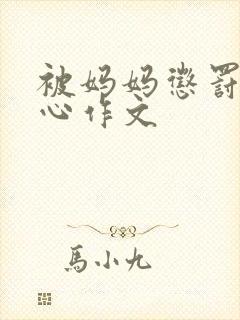 被妈妈惩罚
心作文
馬小九